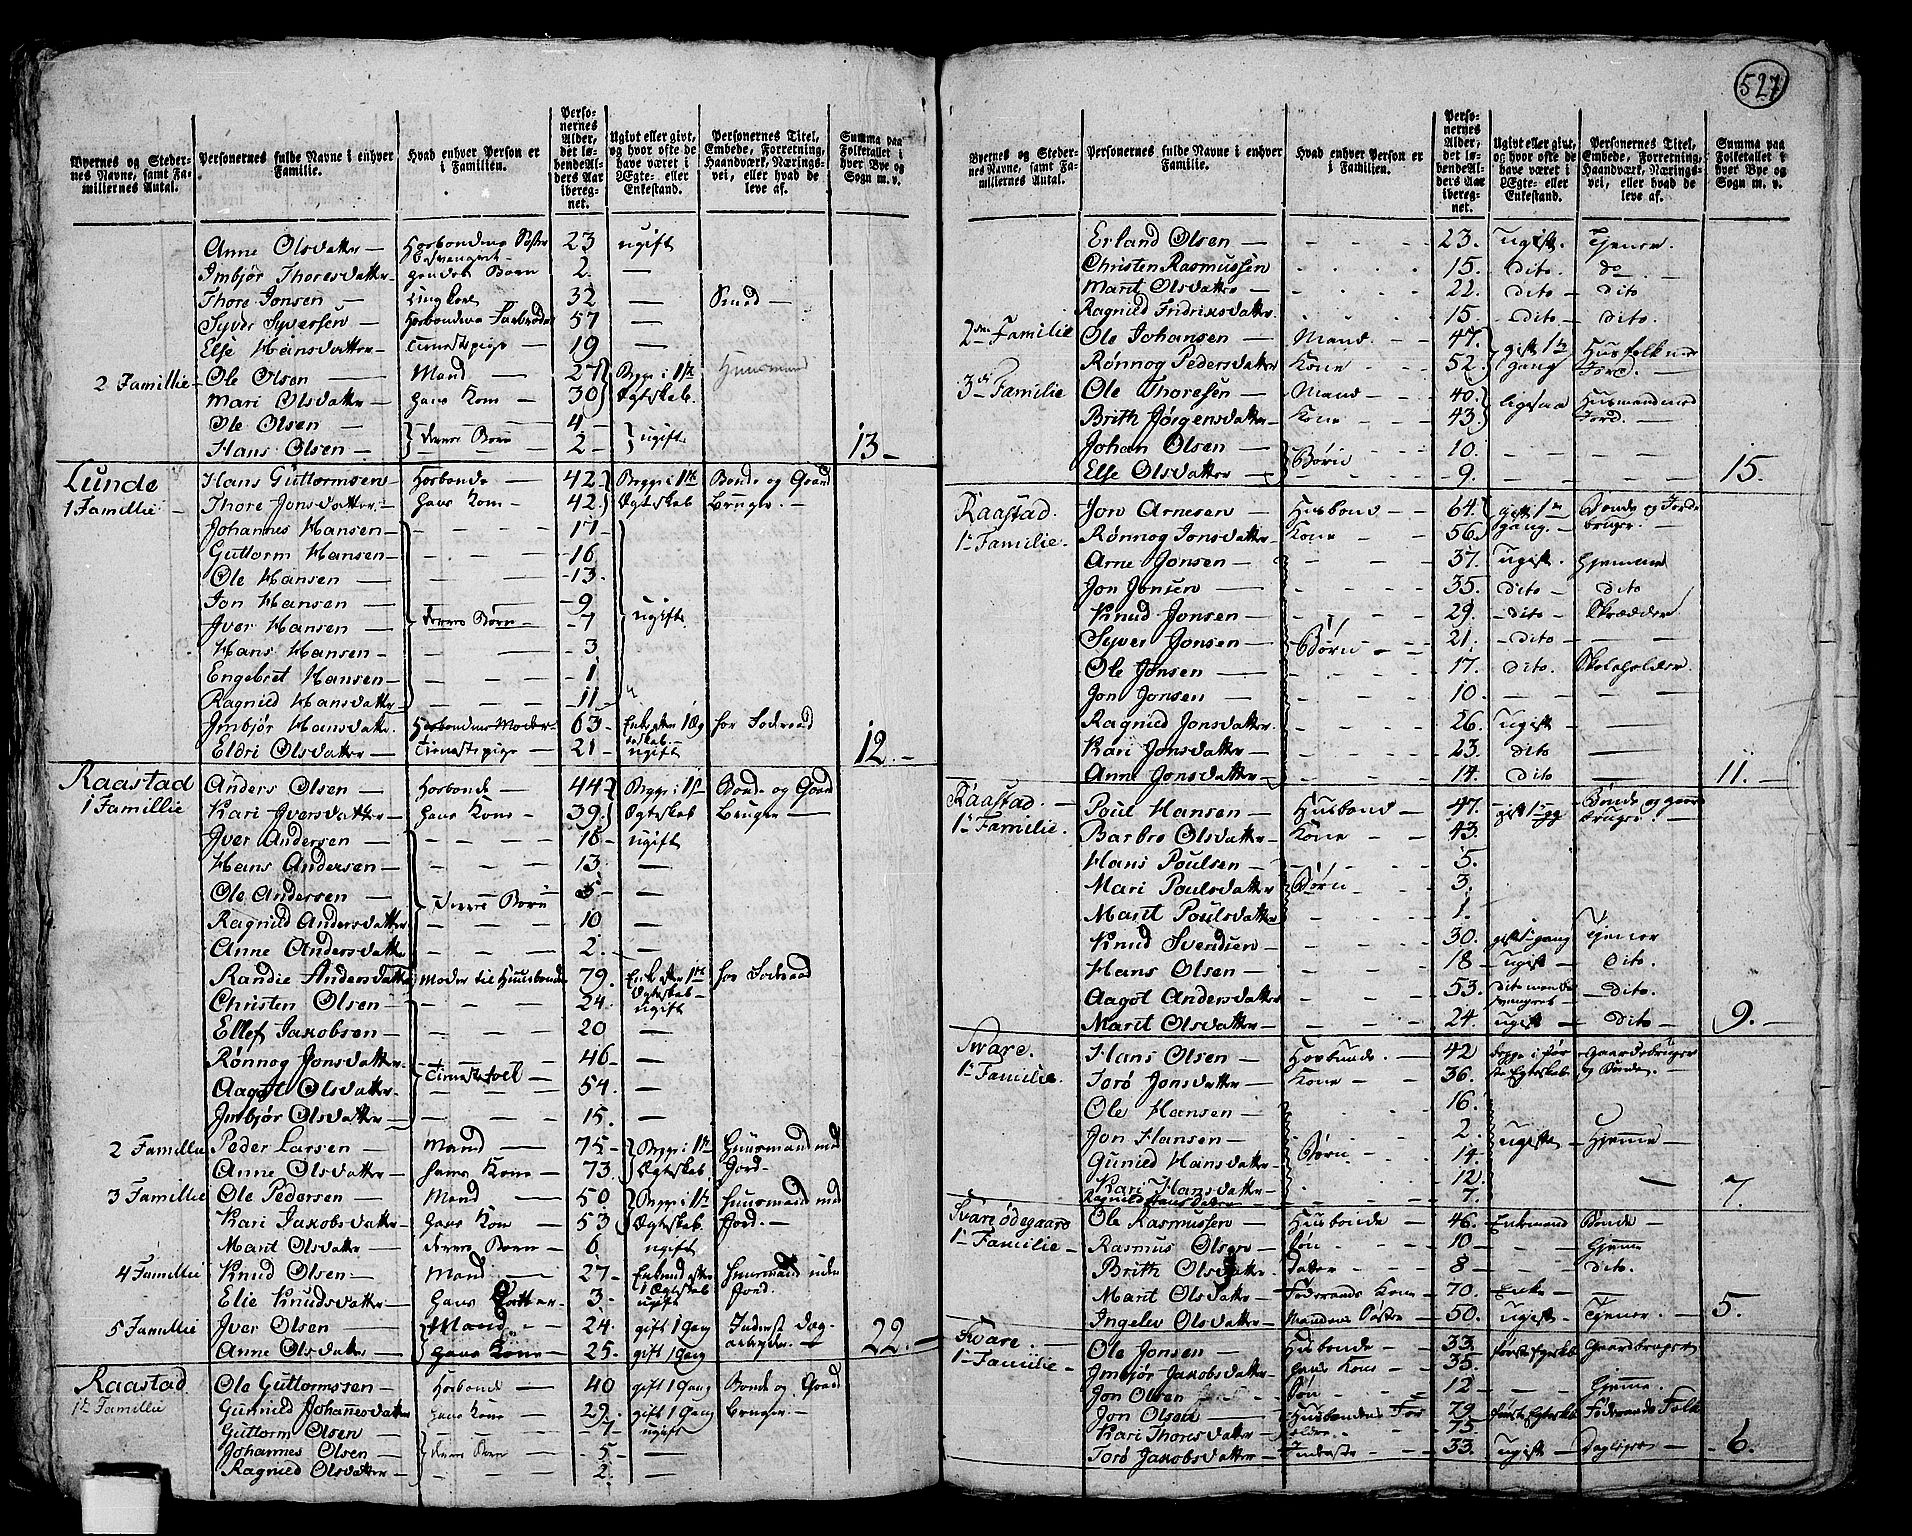 527
Byernes og Steder-
nes Navne, samt Fa-
milliernes Antal.
Personernes fulde Navne i enhver
Familie.
Hvad enhver Person er
i Familien.
Perso-
nernes
Alder,
det lø-
bende Al-
ders Aar
ibereg-
net.
Ugivt eller givt,
og hvor ofte de
have været i
Ægte- eller
Enkestand.
Personernes Titel,
Embede, Forretning,
Haandværk, Nærings-
vei, eller hvad de
leve af.
Summa paa
Folketallet i
hver Bye og
Sogn m. v.
Anne Olsdatter 23 ugift
Imbjør Thoresdatter 2. —
Thore Jonsen 32 — Smed
Syver Syversen 57 —
Else Hansdatter Tienestepige 19 —
2 Famillie Ole Olsen Mand 27 Begge i 1ste Huusmand
Mari Olsdatter Hans Kone 30 Ægteskab.
Ole Olsen 4
Hans Olsen deres Børn 2 ugifte 13
Lunde Hans Guttormsen Hosbonde 42 Begge i 1ste Bonde og Gaard
1 Famillie Thore Jonsdatter Hans Kone 42 Ægteskab Bruger.
Johannes Hansen 17
Guttorm Hansen 16
Ole Hansen 13
Jon Hansen 9
Iver Hansen deres Børn 7 ugifte
Hans Hansen 3
Engebret Hansen 1
Ragnild Hansdatter 11
Imbjør Hansdatter Hosbondens Moder 63
Eldri Olsdatter Tienestepige 21 ugift 12.
Raastad Anders Olsen Hosbonde 44 Begge i 1ste Bonde og Gaard
1 Famillie Kari Iversdatter Hans Kone 39 Ægteskab Bruger
Iver Andersen 16 ugift
Hans Andersen 13. —
Ole Andersen 5 —
Ragnild Andersdatter deres Børn 10 —
Anne Andersdatter 2. —
Randie Andersdatter Moder til Huusbonde 79.
Christen Olsen 24. ugift
Ellef Jakobsen 20 —
Rønnog Jonsdatter 46 —
Aagot Olsdatter 54. —
Imbjør Olsdatter 15. —
2 Famillie Peder Larsen Mand 75 Begge i 1ste Huusmand med
Anne Olsdatter Hans Kone 73 Ægteskab Jord.
3 Famillie Ole Pedersen Mand 50 Begge i 1ste Huusmand med
Kari Jakobsdatter Hans Kone 53 Ægteskab. Jord.
Marit Olsdatter deres Børn 6 ugift
4 Famillie Knud Olsen Mand 27 Huusmand uden
Elie Knudsdatter Hans Datter 3. ugift Jord.
5 Famillie Iver Olsen Mand 24. gift 1 Gang
Anne Olsdatter Hans Kone 25. gift 1 Gang 22.
Raastad Ole Guttormssen Hosbonde 40 gift 1 Gang Bonde og Gaard
1te Famillie Gunnild Johannesdatter Hans Kone 29. gift 1 Gang Bruger.
Guttorm Olsen 7 ugift
Johannes Olsen deres Børn 5 —
Ragnild Olsdatter 2. —
Byernes og Steder-
nes Navne, samt Fa-
milliernes Antal.
Personernes fulde Navne i enhver
Familie.
Hvad enhver Person er
i Familien.
Perso-
nernes
Alder,
det lø-
bende Al-
ders Aar
ibereg-
net.
Ugivt eller givt,
og hvor ofte de
have været i
Ægte- eller
Enkestand.
Personernes Titel,
Embede, Forretning,
Haandværk, Nærings-
vei, eller hvad de
leve af.
Summa paa
Folketallet i
hver Bye og
Sogn m. v.
Erland Olsen 23. ugift. Tjener.
Christen Rasmussen 15. dito do
Marit Olsdatter 22. dito dito
Ragnild Fridriksdatter 15. dito dito.
2den Familie Ole Johansen Mand 47.
Rønnog Pedersdatter Kone 52. gang
3die Familie Ole Thoresen Mand 40. ligesaa
Brith Jørgensdatter Kone 43. Jord.
Johan Olsen 10.
Else Olsdatter Børn 9. 15.
Raastad. Jon Arnesen Husbond 64. gift 1te Bonde og Jord-
1te Familie. Rønnog Jonsdatter Kone 56 gang bruger.
Arne Jonsen 37. ugift. hjemme
Jon Jonsen 35. dito dito
Knud Jonsen 29. dito. Skrædder
Syver Jonsen Børn 21. dito.
Ole Jonsen 17. dito. Skoleholder
Jon Jonsen 10.
Ragnild Jonsdatter 26. ugift
Kari Jonsdatter 23. dito
Anne Jonsdatter 14. dito 11.
Raastad. Poul Hansen Husbond 47. Bonde og gaard
1te Familie. Barbro Olsdatter Kone 43. bruger.
Hans Poulsen 5.
Mari Poulsdatter Børn 3.
Marit Poulsdatter 1.
Knud Svendsen 30. Tjener
Hans Olsen 18 ugift dito.
Aagot Andersdatter 53. dito.
Marit Olsdatter 24. ugift dito 9.
Svare. Hans Olsen Hosbunde. 42 Gaardebruger
1te Familie. Torø Jonsdatter Kone 36. og Bonde.
Ole Hansen 16.
Jon Hansen 2. ugifte Hjemme
Gunild Hansdatter Børn 14.
Kari Hansdatter 12.
Ragnild Hansdatter 7. 7.
Svare ødegaard Ole Rasmussen Husbonde 46. Enkemand Bonde
1te Familie Rasmus Olsen Søn 10 Hjemme
Brith Olsdatter Datter 8 dito.
Marit Olsdatter Føderaads Kone 70. Enke
Ingelev Olsdatter Mandens Søster 50. ugift Tjener 5.
Svare. Ole Jonsen Husbonde 33. Gaardbruger
1te Familie Imbjør Jakobsdatter Hans Kone 35.
Jon Olsen Søn 12 Hjemme.
Jon Olsen Husbondens Far 79 Føderaads Folk
Kari Thoresdatter 75.
Torø Jakobsdatter Inderste 33. ugift 6.